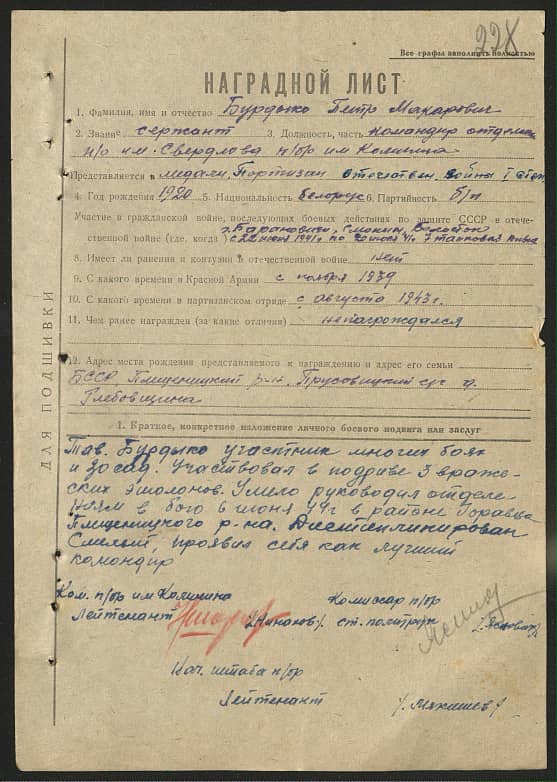 228
Все графы заполнить полностью
НАГРАДНОЙ ЛИСТ
1. Фамилия, имя и отчество Бурдыко Петр Макарович
2. Звание сержант 3. Должность, часть командир отделен.
п/о им. Свердлова п/бр им Калинина
Представляется к медали, Партизан Отечествен. война I степ
4. Год рождения 1920 5. Национальность белорус 6. Партийность б/п
Участие в гражданской войне, последующих боевых действиях по защите СССР в отече-
г. Барановичи, Белосток
ственной войне (где, когда) с 22 июня 1941 г по 41 г 7 танковая дивиз
8. Имеет ли ранения и контузии в отечественной войне нет
9. С какого времени в Красной Армии с ноября 1939
10. С какого времени в партизанском отряде с августа 1943 г.
11. Чем ранее награжден (за какие отличия) ненагрождался
12. Адрес места рождения представляемого к награждению и адрес его семьи
БССР, Плещеницкий р-н. Прусовицкий с/с д.
Глебовщина
ДЛЯ ПОДШИВКИ
1. Краткое, конкретное изложение личного боевого подвига или заслуг
Тов. Бурдыко участник многих боях
и засад. Участвовал в подриве 3 враже-
ских эшолонов. Умело руководил отделе-
нием в бою 6 июня 44 г в районе
Плещеницкого р-на. Дистеплинирован
Смелый, проявил себя как лучший
командир
Ком. п/бр им Калинина Комиссар п/бр
Лейтенант ст. политрук
Нач. штаба п/бр
Лейтенант /Мякишев/